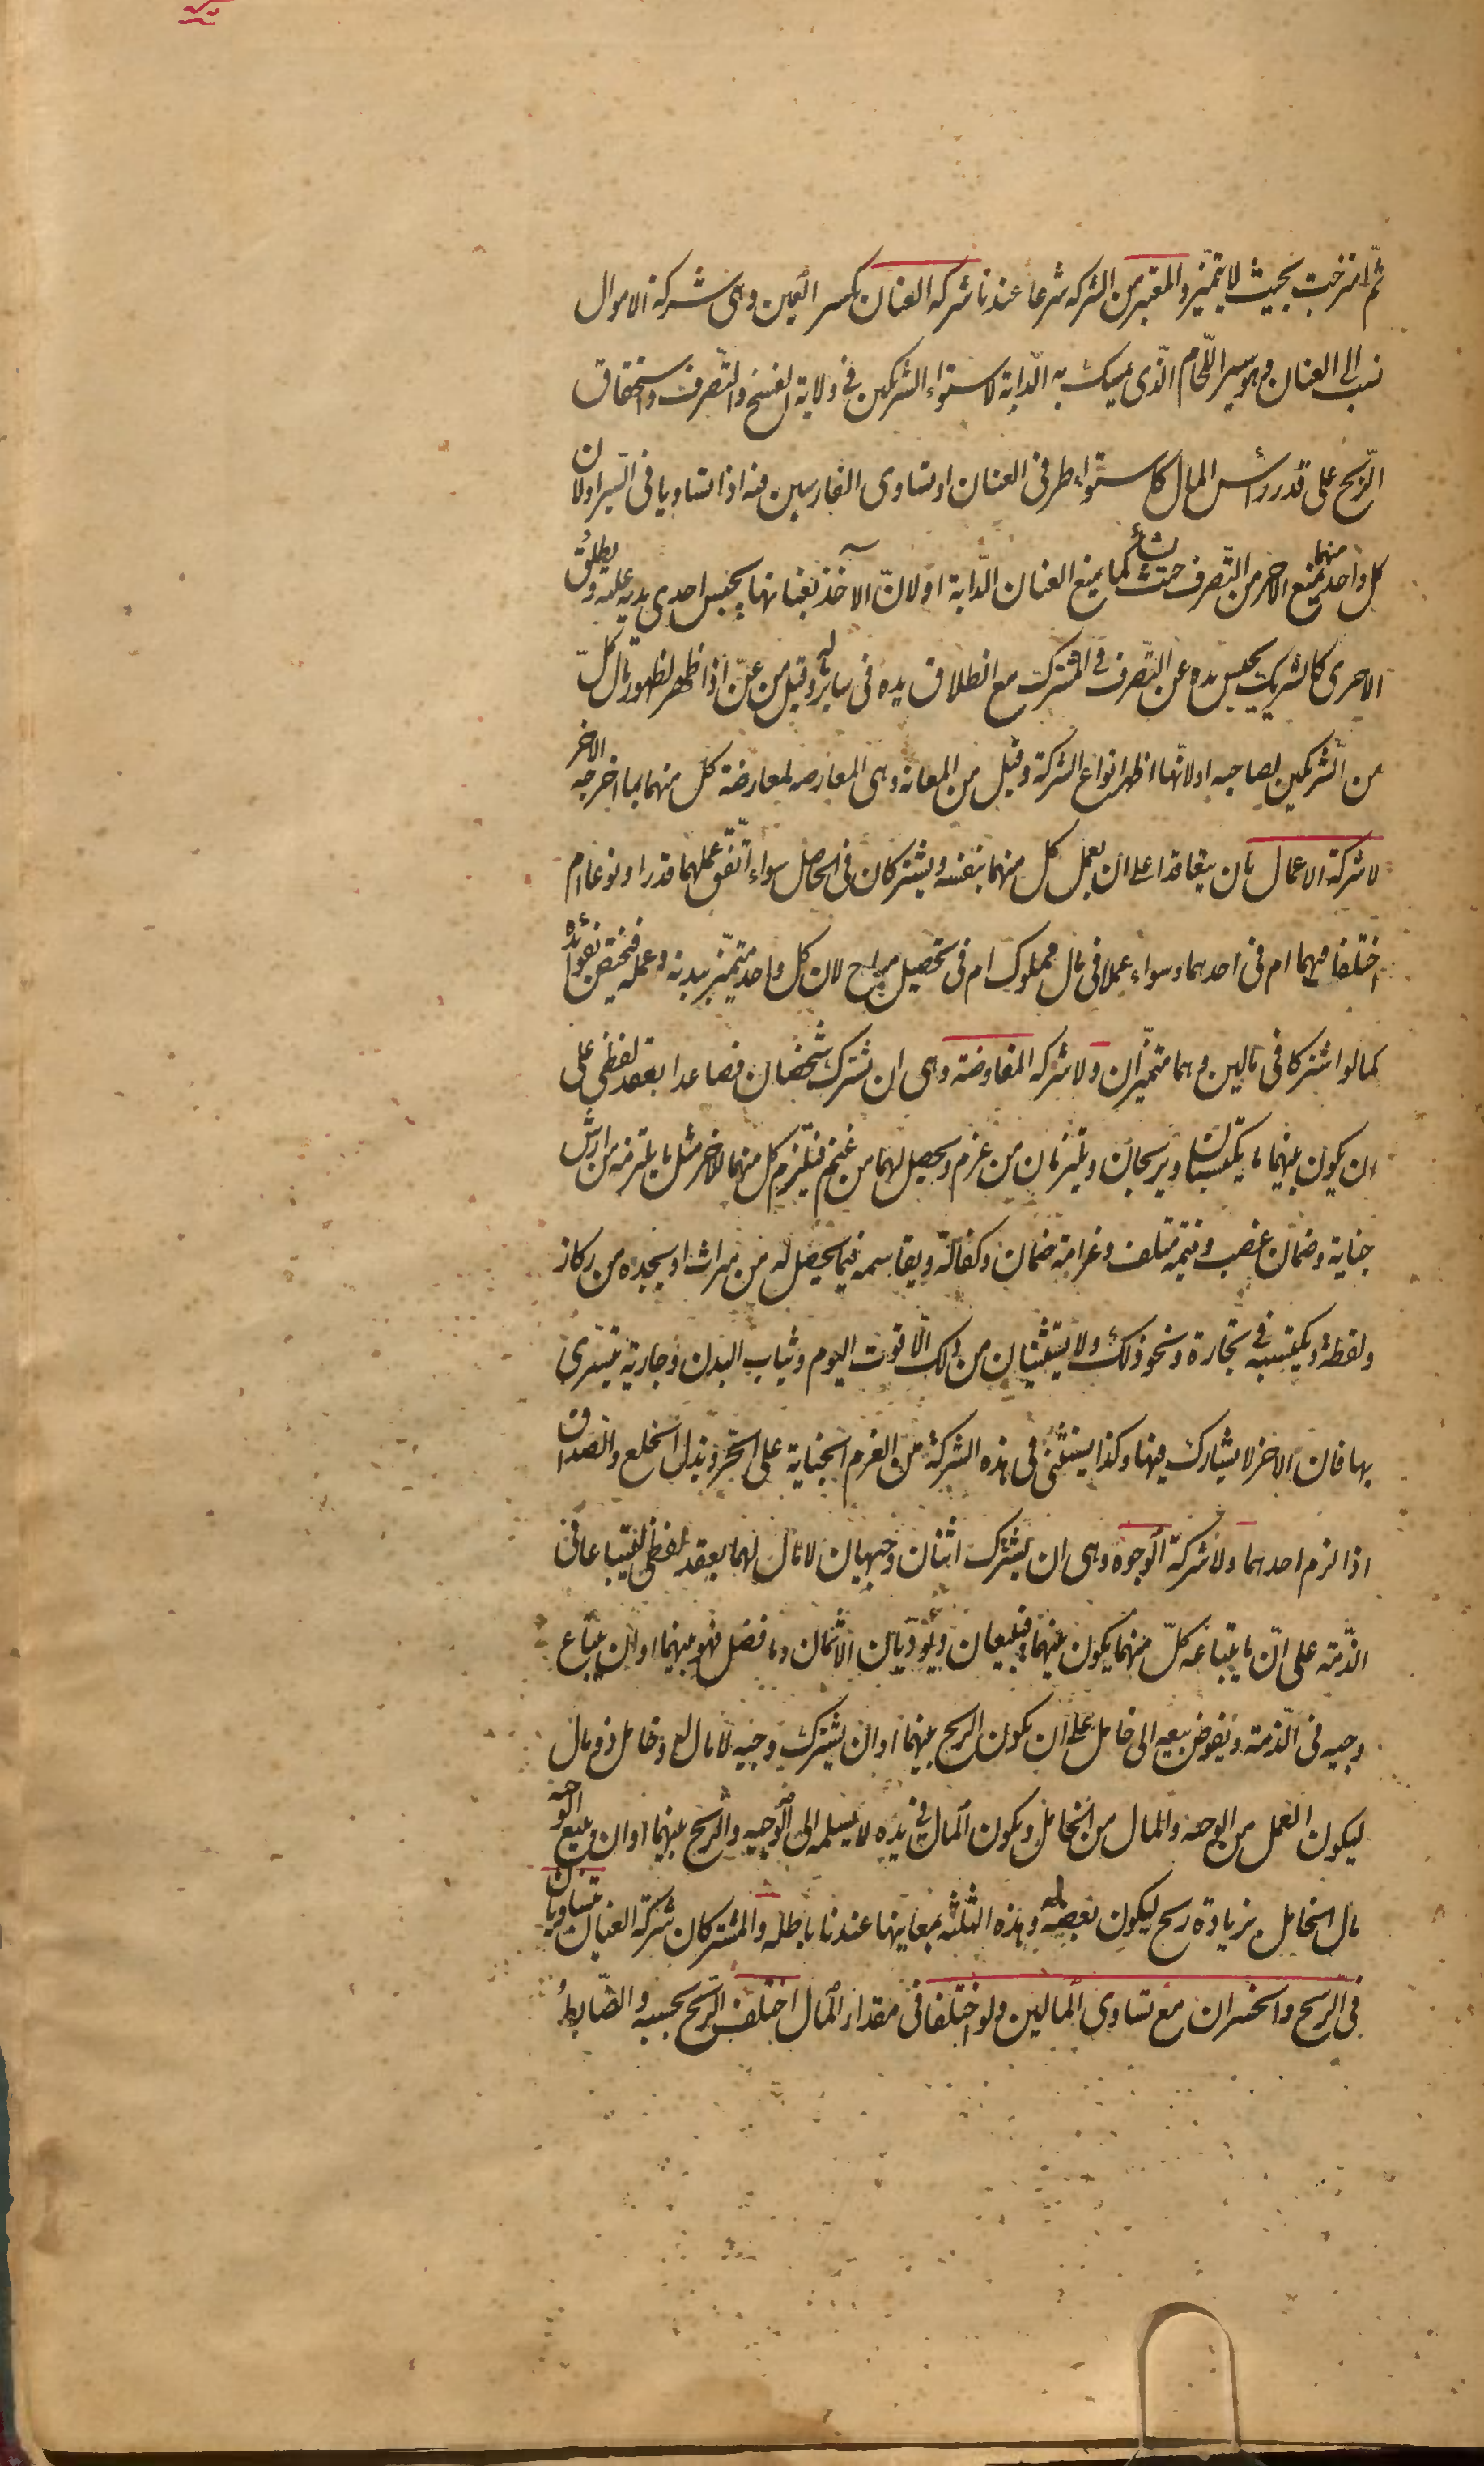 ثمّ امتزجت بحيث لا يتميّز والمعتبر من الشركة شرعا عندنا شركة العنان بكسر العين وهى شركة الاموال
نسب الى العنان وهو سير اللّجام الّذى يمسك به الدّابة لاستواء الشريكين فى ولاية الفسخ والتّصرف واستحقاق
الرّبح على قدر رأس المال كاستواء طرفى العنان او تساوى الفارسين فيه اذا تساويا فى السّير او لان
كل واحد منهما يمنع الاخر من التّصرف حيث يشاء كما يمنع العنان الدّابة او لانّ الآخذ بعنانها يحبس احدى يديه عليه ويطلق
الاخرى كالشريك يحبس يده عن التّصرف فى المشترك مع انطلاق يده فى ساير ماله وقيل من عنّ اذا ظهر لظهور مال كلّ
من الشريكين لصاحبه او لانّها اظهر انواع الشركة وقيل من المعانة وهى المعارضة لمعارضة كل منهما بما اخرجه الاخر
لا شركة الاعمال بان يتعاقدا على ان يعمل كل منهما بنفسه ويشتركان فى الحاصل سواء اتّفق عملهما قدرا ونوعا ام
اختلفا فيهما ام فى احدهما وسواء عملا فى مال مملوك ام فى تحصيل مباح لان كل واحد متميّز ببدنه وعمله فيختص بفوائده
كما لو اشتركا فى مالين وهما متميّزان ولا شركة المفاوضة وهى ان يشترك شخصان فصاعدا بعقد لفظى على
ان يكون بينهما ما يكتسبان ويربحان ويلتزمان من غرم ويحصل لهما من غنم فيلتزم كل منهما للاخر مثل ما يلتزمه من ارش
جناية وضمان غصب وقيمة متلف وغرامة ضمان وكفالة ويقاسمه فيما يحصل له من ميراث او يجده من ركاز
ولقطة ويكتسبه فى تجارة ونحو ذلك ولا يستثنيان من ذلك الّا قوت اليوم وثياب البدن وجارية يتسّرى
بها فان الاخر لا يشارك فيها وكذا يستثنى فى هذه الشركة من الغرم الجناية على الحّر وبذل الخلع والصداق
اذا لزم احدهما ولا شركة الوجوه وهى ان يشترك اثنان وجيهان لا مال لهما بعقد لفظى ليتباعا فى
الذّمة على انّ ما يبتاعه كلّ منهما يكون بينهما فيبيعان ويؤدّيان الاثمان وما فضل فهو بينهما او ان يبتاع
وجيه فى الذّمة ويفوض بيعه الى خامل على ان يكون الربح بينهما او ان يشترك وجيه لا مال له وخامل ذو مال
ليكون العمل من الوجيه والمال من الخامل ويكون المال فى يده لا يسلمه الى الوجيه والربح بينهما او ان يبيع الوجيه
مال الخامل بزيادة ربح ليكون بعضه له وهذه الثلثه بمعانيها عندنا باطله والمشتركان شركة العنان يتساويان
فى الرّبح والخسران مع تساوى المالين ولو اختلفا فى مقدار المال اختلف الرّبح بحسبه والضّابط